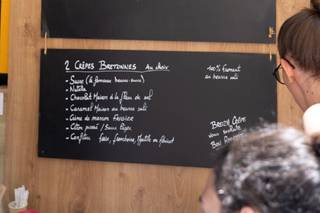 2 CRÊPES BRETONNES Au choix
- Sucre (la fameuse beurre-sucre)
- Nutella
- Chocolat Maison à la fleur de sel
- Caramel Maison au beurre salé
- Crème de marron FAUGIER
- Citron pressé / Sucre
- Confiture fraise, framboise, Myrtille ou Abricot
100% froment
au beurre salé
BREIZH CRÊPE
vous souhaite
Bon